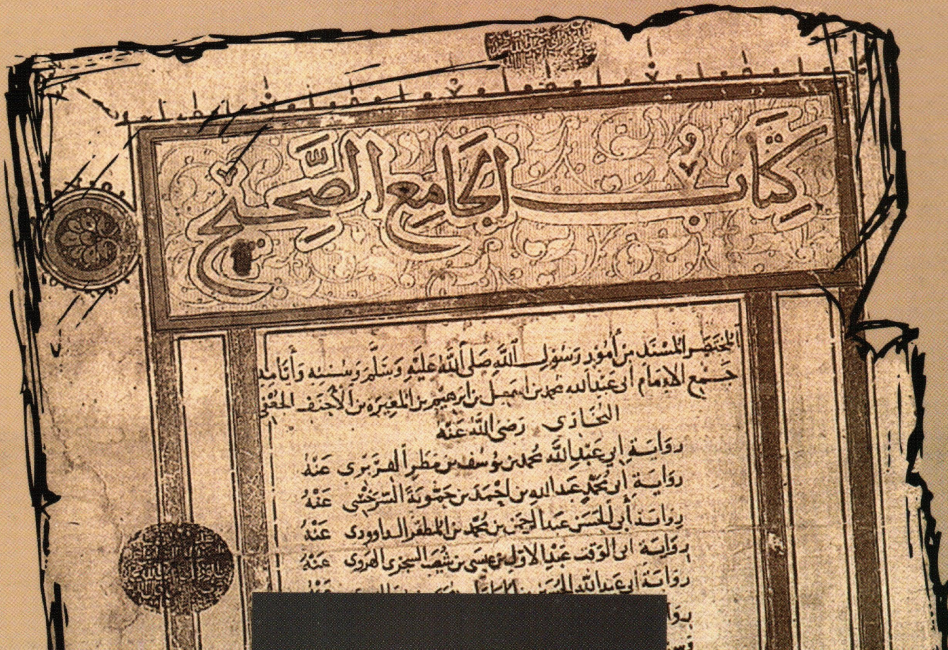 كِتَابُ الجَامِعِ الصَّحِيحِ
المختصر المسند من أمور رسول الله صَلَّى اللهُ عَلَيْهِ وَسَلَّمَ وسننه وأيامه
جمع الإمام أبي عبد الله محمد بن إسمعيل بن إبرهيم بن المغيرة بن الأحنف الجعفي
البخاري رضي الله عنه
رواية أبي عبد الله محمد بن يوسف بن مطر الفربري عنه
رواية أبي محمد عبد الله بن أحمد بن حمّوية السرخسي عنه
رواية أبي الحسن عبد الرحمن بن محمد بن المظفر الداوودي عنه
رواية أبي الوقت عبد الأول بن عيسى بن شعيب السجزي الهروي عنه
رواية أبي عبد الله الحسين بن